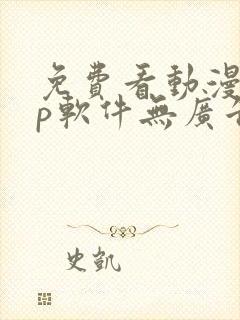 免費看動漫
p軟件無廣告
史凱